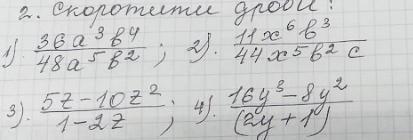 2. Скоротити дроби:
1) \frac{36a^3b^4}{48a^5b^2}; 2). \frac{11x^6b^3}{44x^5b^2c}
3). \frac{5z-10z^2}{1-2z}; 4). \frac{16y^3-8y^2}{(2y+1)}